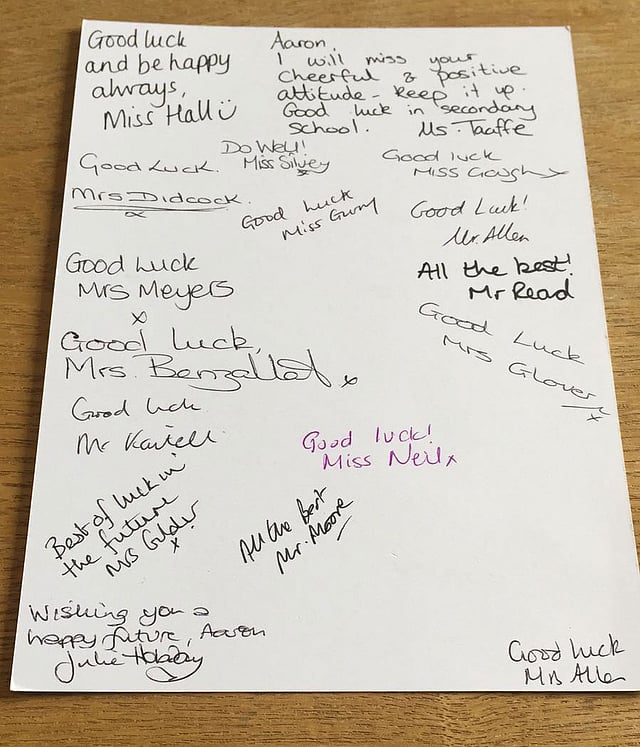 Good luck
and be happy
always,
Miss Hall
Aaron,
I will miss your
cheerful & positive
attitude - keep it up.
Good luck in secondary
school. Ms. Taaffe
Do Well!
Miss Silvey
x
Good Luck.
Mrs Didcock.
Good luck
Miss Gough
Good luck
Miss
Good Luck!
Mr. Allen
Good Luck
Mrs Meyers
x
All the best!
Mr Read
Good Luck
Mrs Glover
x
Good luck,
Mrs. x
Good luck
Mr
Good luck!
Miss Neil x
Best of luck in
the future
Mrs Gilder
x
All the best
Mr. Moore
Wishing you a
happy future, Aaron
Julie
Good luck
Mrs Allen